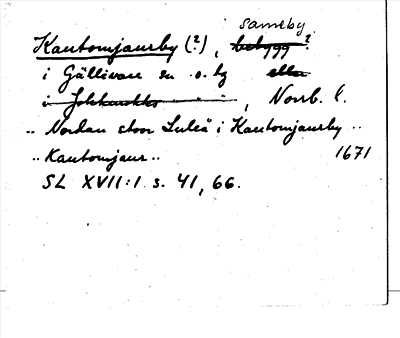 sameby
Kautomjaursby (?), bebygg ?
i Gällivare sn o. lg eller
i Jokkmokks , Norrb. l.
.. Nordan stoor Luleå i Kautomjaursby ..
.. Kautomjaur .. 1671
SL XVII:1 s. 41, 66.